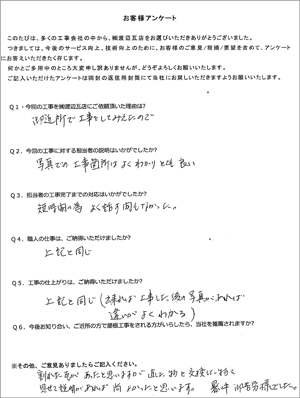 お客様アンケート
このたびは、多くの工事会社の中から、㈱渡辺瓦店をお選びいただきありがとうございました。
つきましては、今後のサービス向上、技術向上のために、お客様のご意見/指摘/要望を含めて、アンケート
にお答えいただきたく存じます。
何かとご多用中のところ大変申し訳ありませんが、どうぞよろしくお願いいたします。
ご記入いただけたアンケートは同封の返信用封筒にて当社にお戻しいただきますようお願いいたします。
Q1・今回の工事を㈱渡辺瓦店にご依頼頂いた理由は?
御近所で工事をしてみえたので
Q2．今回の工事に対する担当者の説明はいかがでしたか?
写真での工事箇所はよくわかりとても良い
Q3．担当者の工事完了までの対応はいかがでしたか?
短時間の為よく話す間もなかった。
Q4．職人の仕事は、ご納得いただけましたか?
上記と同じ
Q5．工事の仕上がりは、ご納得いただけましたか?
上記と同じ(出来れば工事した後の写真があれば
違いがよくわかる)
Q6．今後お知り合い、ご近所の方で屋根工事をされる方がいらしたら、当社を推薦されますか?
※その他、ご意見ありましたらご記入ください。
割れた瓦があったと思いますが直した物と交換した物も
見せて説明があれば尚よかったと思います。暑中御苦労様でした。